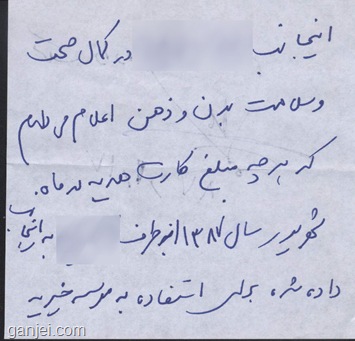 اینجانب در کمال صحت
و سلامت بدن و ذهن اعلام می دارم
که هر چه مبلغ کارت هدیه در ماه
شهریور سال ۱۳۸۷ از طرف به اینجانب
داده شده برای استفاده به موسسه خیریه
ganjei.com